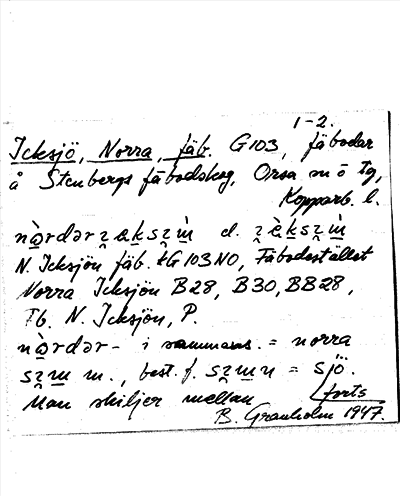 1-2.
Icksjö, Norra, fäb. G103, fäbodar
å Stenbergs fäbodskog, Orsa m o tg,
Kopparb. l.
N. Icksjön fäb. tG103NO, Fäbodstället
Norra Icksjön B28, B30, BB28,
Fb. N. Icksjön, P.
nàrdər- i sammans. = norra
m., best. f. = sjö.
Man skiljer mellan forts
B. Granholm 1947.